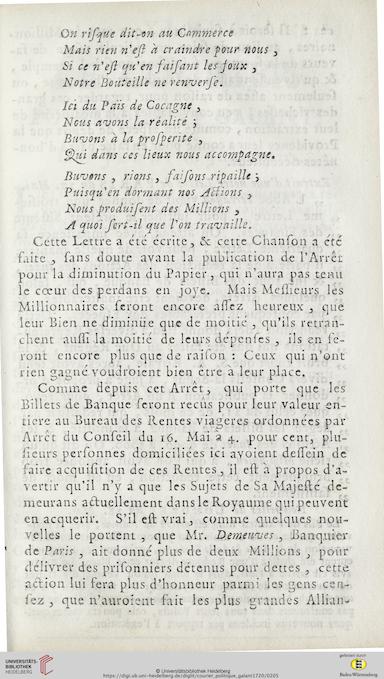 On risque dit-on au Commerce
Mais rien n'est à craindre pour nous ,
Si ce n'est qu'en faisant les foux ,
Notre Bouteille ne renverse.
Ici du Païs de Cocagne ,
Nous avons la réalité ;
Buvons à la prosperite ,
Qui dans ces lieux nous accompagne.
Buvons , rions , faisons ripaille ;
Puisqu'en dormant nos Actions ,
Nous produisent des Millions ,
A quoi sert-il que l'on travaille.
Cette Lettre a été écrite , & cette Chanson a été
faite , sans doute avant la publication de l'Arrêt
pour la diminution du Papier, qui n'aura pas tenu
le cœur des perdans en joye. Mais Messieurs lés
Millionnaires seront encore assez heureux , que
leur Bien ne diminüe que de moitié , qu'ils retran-
chent aussi la moitié de leurs dépenses , ils en se-
ront encore plus que de raison : Ceux qui n'ont
rien gagné voudroient bien être à leur place.
Comme depuis cet Arrêt, qui porte que les
Billets de Banque seront recûs pour leur valeur en-
tiere au Bureau des Rentes viageres ordonnées par
Arrêt du Conseil du 16. Mai a 4. pour cent, plu-
sieurs personnes domiciliées ici avoient dessein de
faire acquisition de ces Rentes, il est à propos d'a-
vertir qu'il n'y a que les Sujets de Sa Majesté de-
meurans actuellement dans le Royaume qui peuvent
en acquerir. S'il est vrai, comme quelques nou-
velles le portent , que Mr. Demeuves , Banquier
de Paris , ait donné plus de deux Millions , pour
délivrer des prisonniers détenus pour dettes , cette
action lui sera plus d'honneur parmi les gens cen-
sez , que n'auroient fait les plus grandes Allian-
UNIVERSITÄTS-
BIBLIOTHEK
HEIDELBERG
© Universitätsbibliothek Heidelberg
https://digi.ub.uni-heidelberg.de/diglit/courier_politique_galant1720/0205
gefördert durch
Baden-Württemberg